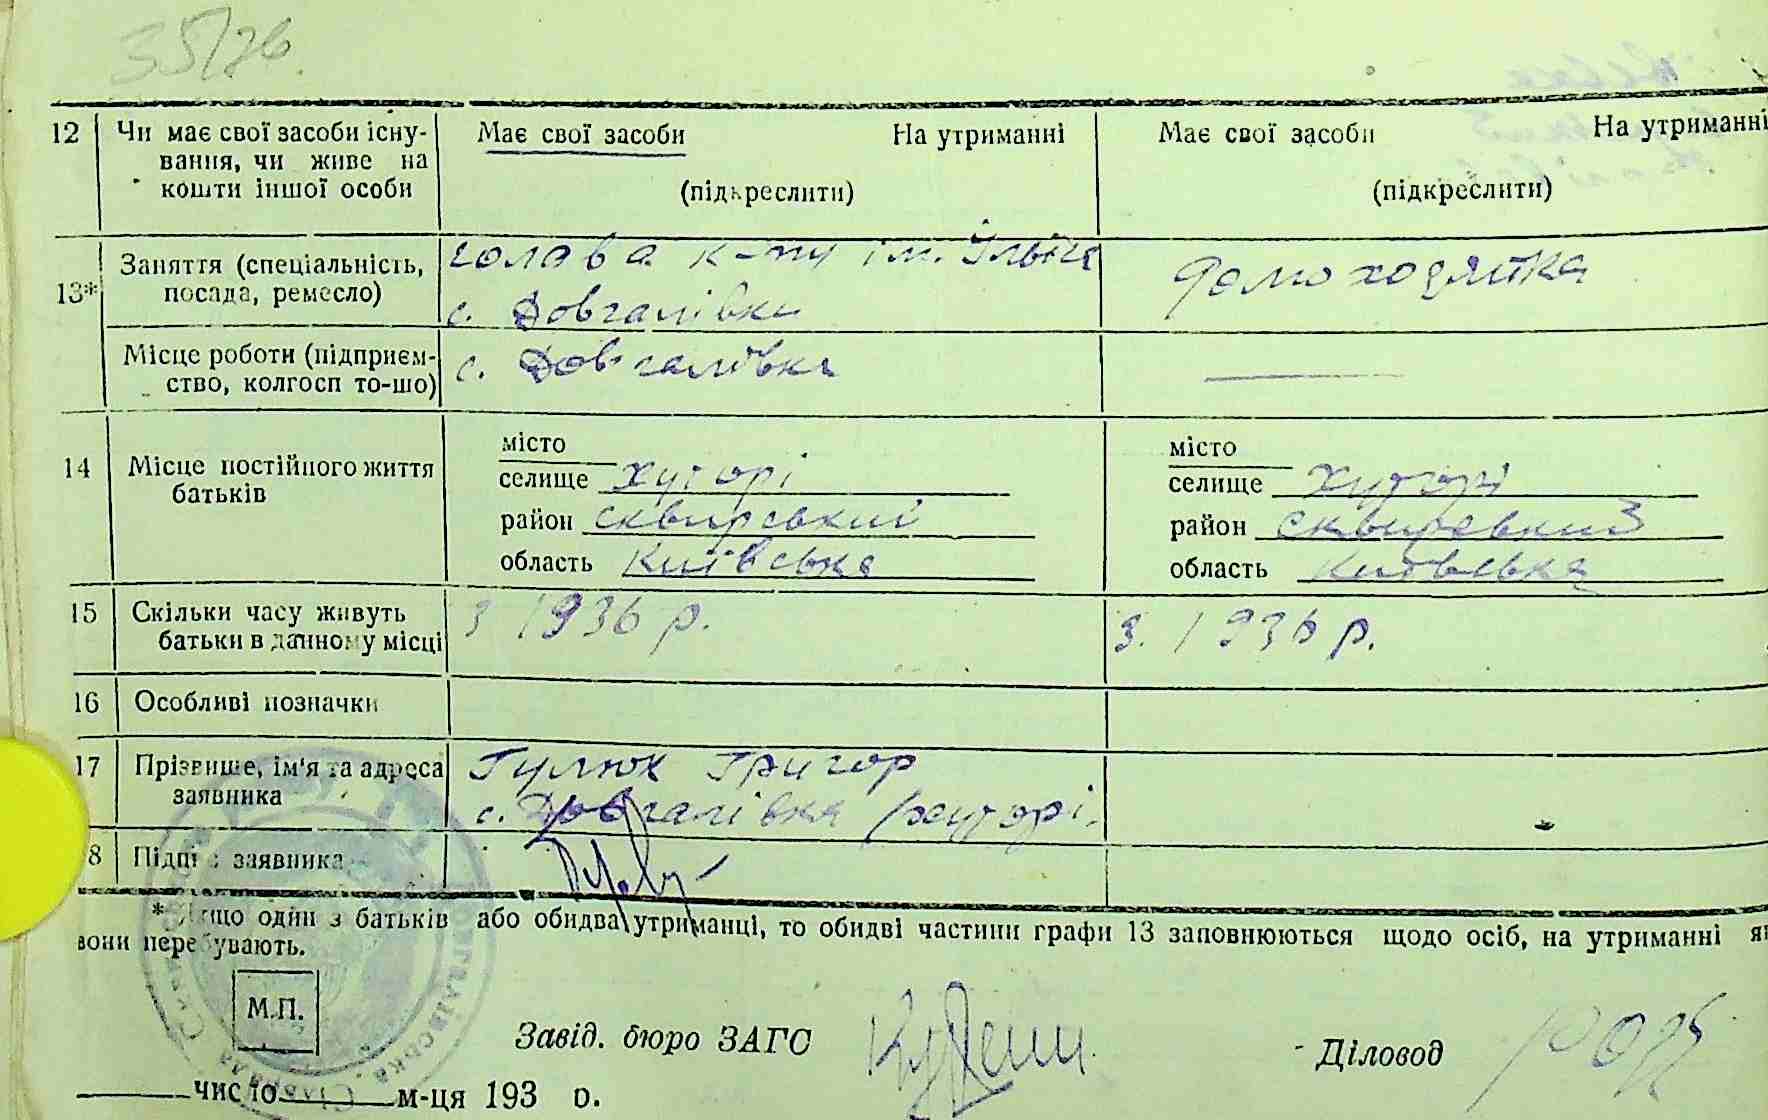 35/26.
12 Чи має свої засоби існу- Має свої засоби На утриманні Має свої засоби На утриманні
вання, чи живе на
кошти іншої особи (підкреслити) (підкреслити)
Заняття (спеціальність, голова к-пу ім. Ілліча Домохозяйка
13* посада, ремесло) с. Довгалівка
Місце роботи (підприєм- с. Довгалівка
ство, колгосп то-що)
місто місто
14 Місце постійного життя селище хуторі селище хуторі
батьків район сквирський район сквирський
область Київська область Київська
15 Скільки часу живуть з 1936 р. з. 1936 р.
батьки в данному місці
16 Особливі позначки
17 Прізвише, ім'я та адреса Гулюк Григор
заявника с. Довгалівка хуторі.
8 Підпис заявника
* Якщо один з батьків або обидва утриманці, то обидві частини графи 13 заповнюються щодо осіб, на утриманні як
вони перебувають.
М.П.
Завід. бюро ЗАГС Діловод
число м-ця 193 р.